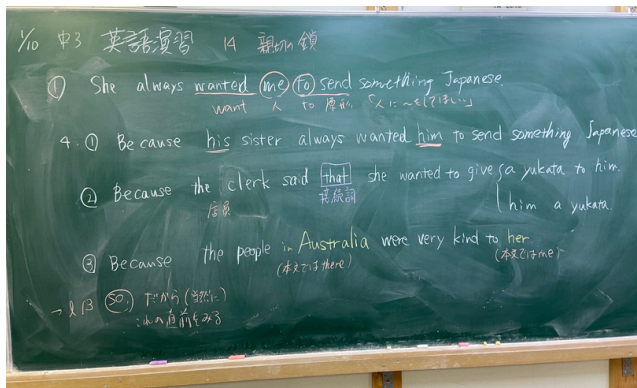 1/10 中3 英語演習 14 親切の鎖
① She always wanted me to send something Japanese.
want 人 to 原形 「人に〜をしてほしい」
4. ① Because his sister always wanted him to send something Japanese
② Because the clerk said that she wanted to give { a yukata to him.
him a yukata.
店員 接続詞
③ Because the people in Australia were very kind to her.
(本文ではthere) (本文ではme)
→ l 13 so, だから(当然に)
これの直前をみる